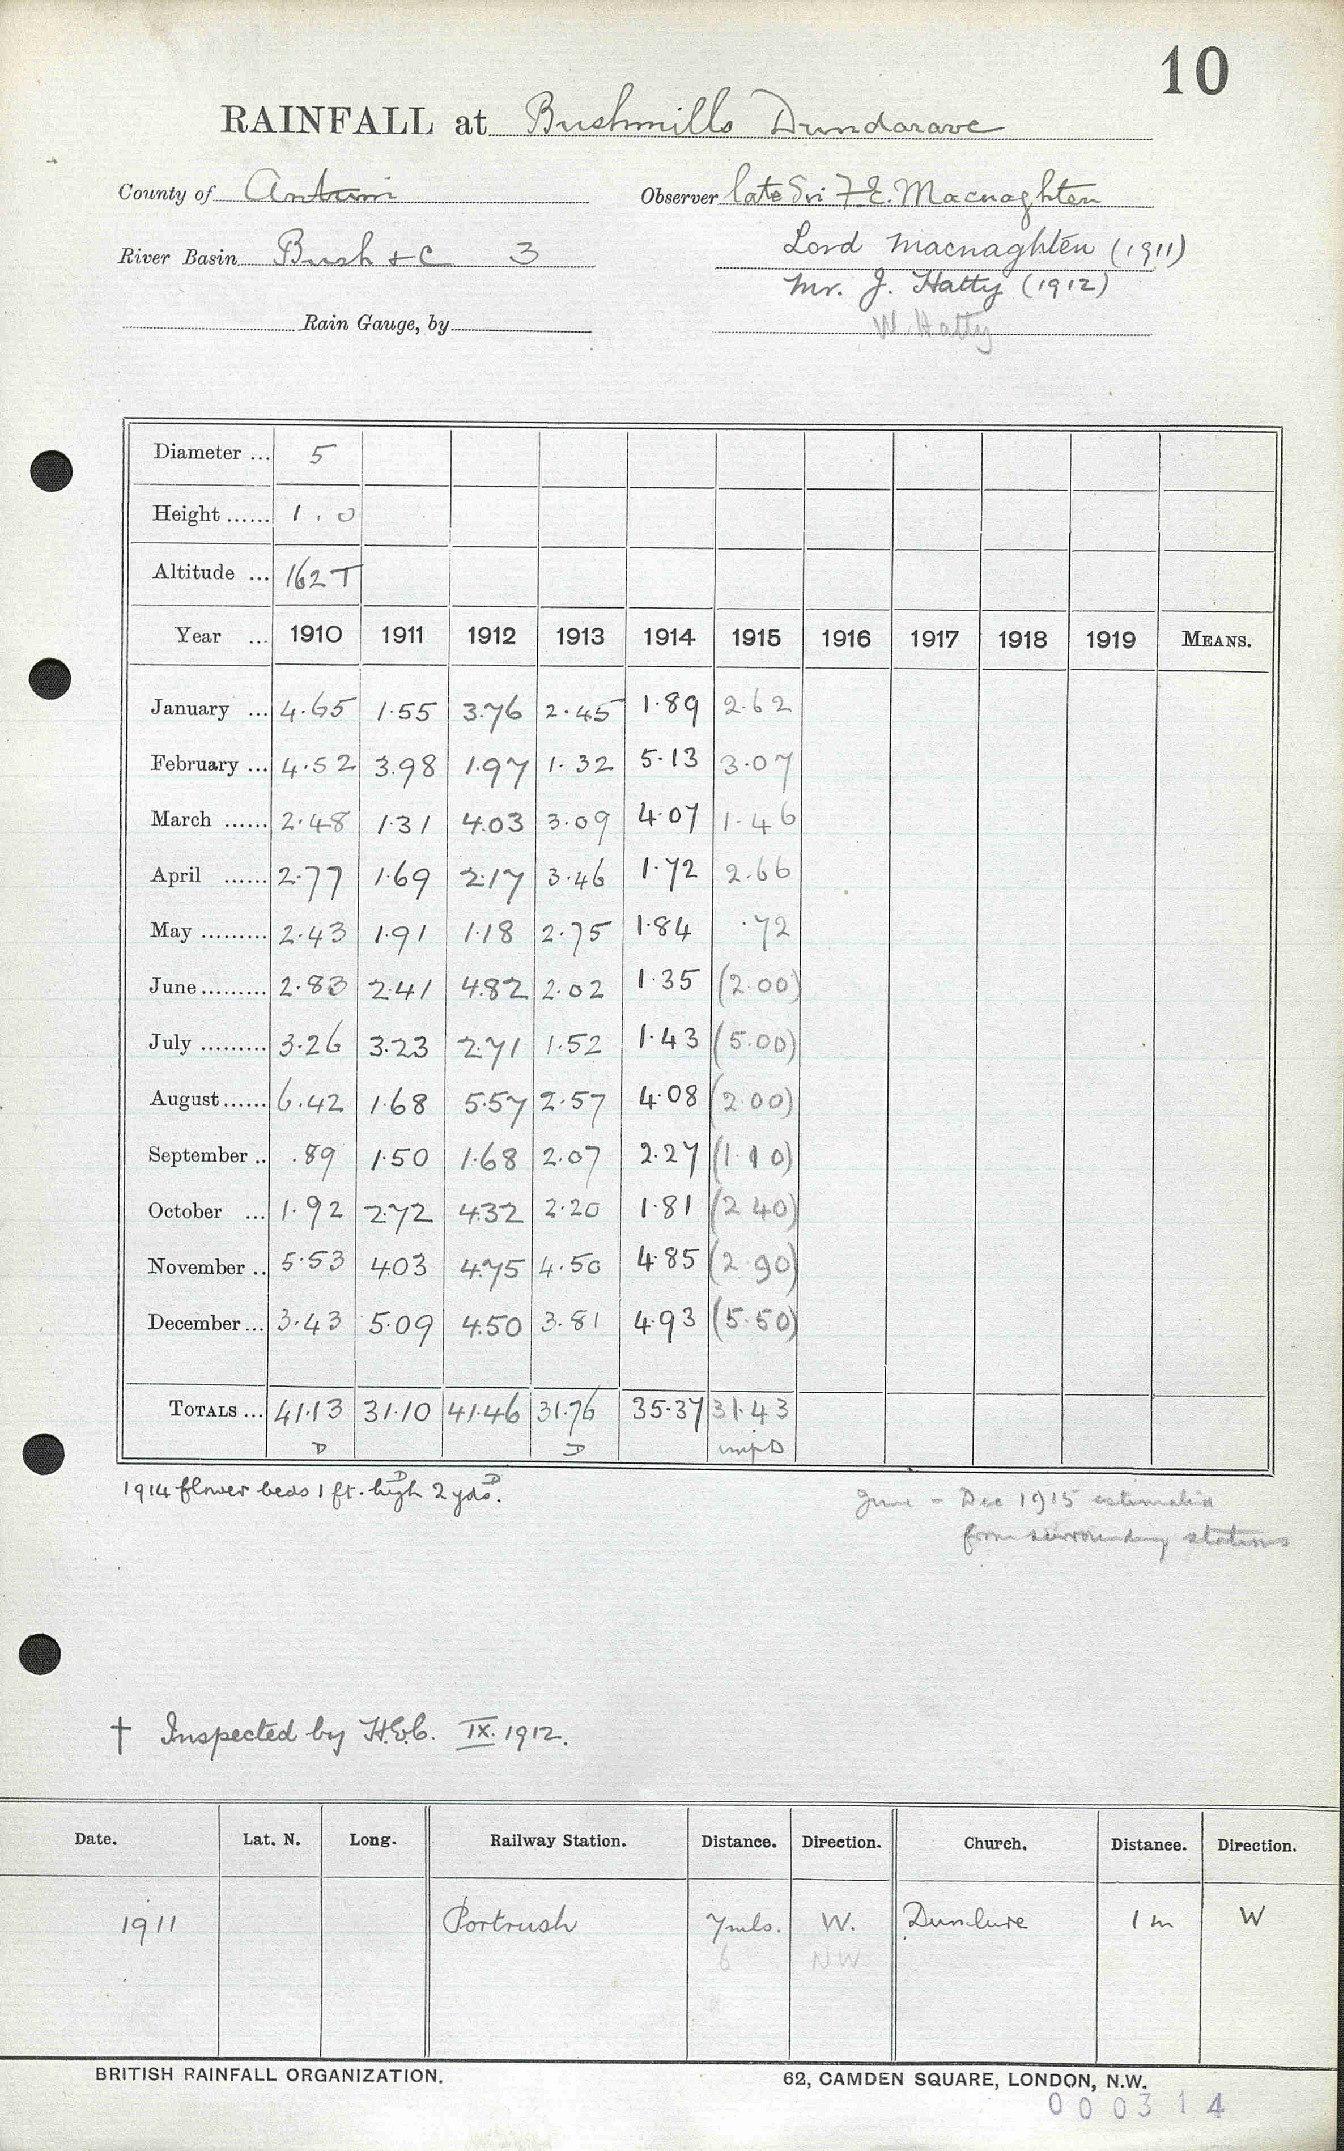 10
RAINFALL at Bushmills Dundarave
County of Antrim Observer late Sir F. E. Macnaghten
Lord Macnaghten (1911)
River Basin Bush &c 3
Mr. J. Hatty (1912)
Rain Gauge, by W. Hatty
Diameter ... 5
Height ...... 1.0
Altitude ... 162 T
Year ... 1910 1911 1912 1913 1914 1915 1916 1917 1918 1919 MEANS.
January ... 4.65 1.55 3.76 2.45 1.89 2.62
February ... 4.52 3.98 1.97 1.32 5.13 3.07
March ...... 2.48 1.31 4.03 3.09 4.07 1.46
April ...... 2.77 1.69 2.17 3.46 1.72 2.66
May ......... 2.43 1.91 1.18 2.75 1.84 .72
June ......... 2.83 2.41 4.82 2.02 1.35 (2.00)
July ......... 3.26 3.23 2.71 1.52 1.43 (5.00)
August ...... 6.42 1.68 5.57 2.57 4.08 (2.00)
September .. .89 1.50 1.68 2.07 2.27 (1.10)
October ... 1.92 2.72 4.32 2.20 1.81 (2.40)
November .. 5.53 4.03 4.75 4.50 4.85 (2.90)
December ... 3.43 5.09 4.50 3.81 4.93 (5.50)
TOTALS ... 41.13 31.10 41.46 31.76 35.37 31.43
D D impD
1914 flower beds 1 ft. high 2 yds.
June - Dec 1915 estimated
from surrounding stations
† Inspected by
IX. 1912.
Date. Lat. N. Long. Railway Station. Distance. Direction. Church. Distance. Direction.
1911 Portrush 7 mls. W. Dunluce 1 m W
6 NW
BRITISH RAINFALL ORGANIZATION. 62, CAMDEN SQUARE, LONDON, N.W.
000314